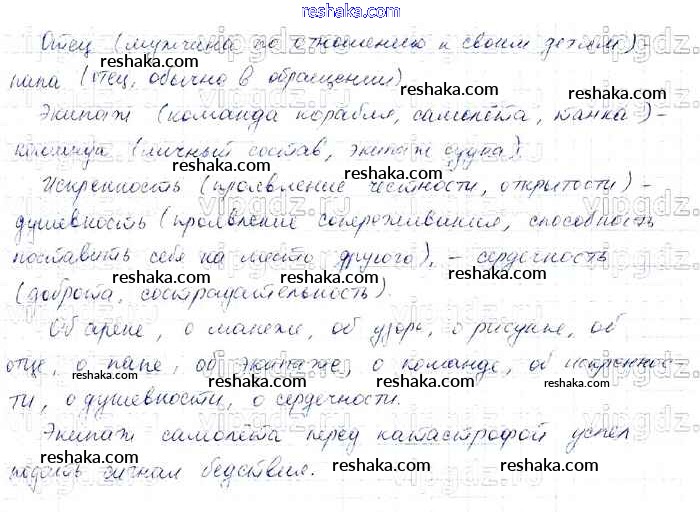 reshaka.com
Отец (мужчина по отношению к своим детям) -
папа (отец, обычно в обращении)
reshaka.com reshaka.com
Экипаж (команда корабля, самолёта, танка) -
команда (личный состав, экипаж судна).
reshaka.com reshaka.com
Искренность (проявление честности, открытости) -
reshaka.com reshaka.com
душевность (проявление сопереживания, способность
поставить себя на место другого), - сердечность
reshaka.com reshaka.com
(доброта, сострадательность).
reshaka.com
Об арене, о манеже, об узоре, о рисунке, об
reshaka.com reshaka.com
отце, о папе, об экипаже, о команде, об искреннос-
reshaka.com reshaka.com
ти, о душевности, о сердечности.
reshaka.com reshaka.com
Экипаж самолёта перед катастрофой успел
подать сигнал бедствия.
reshaka.com reshaka.com